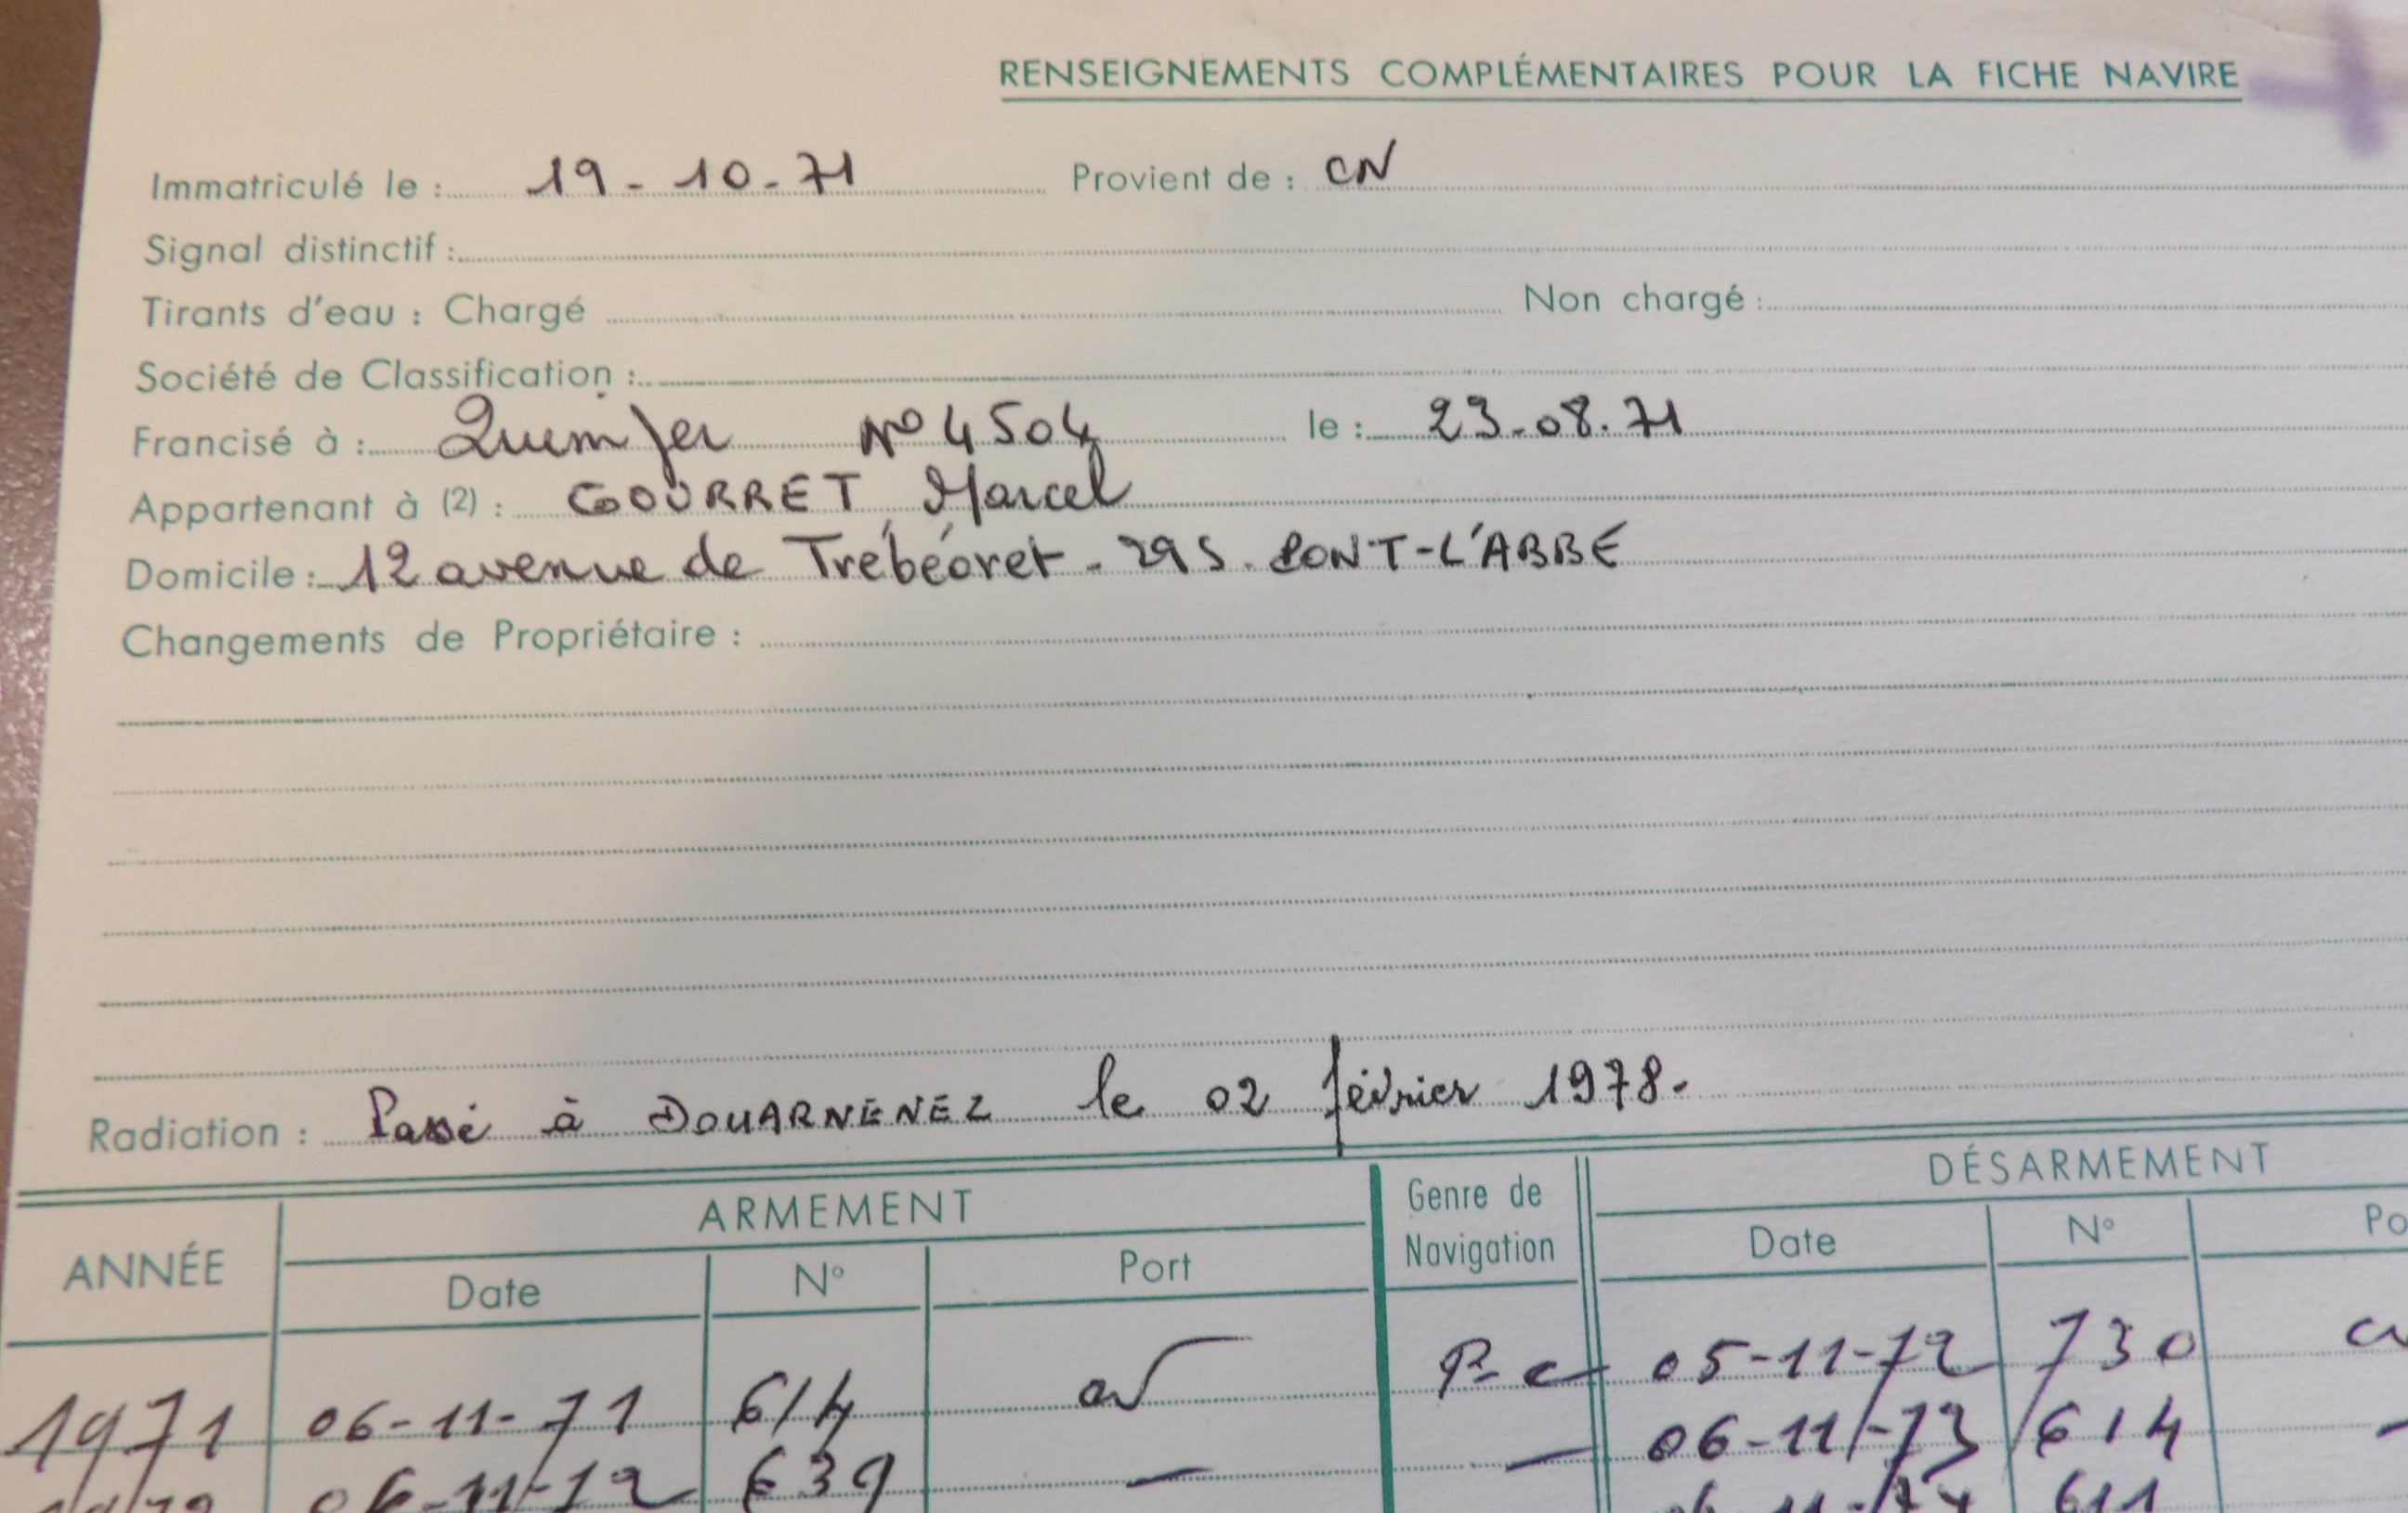 RENSEIGNEMENTS COMPLÉMENTAIRES POUR LA FICHE NAVIRE
Immatriculé le : 19-10-71 Provient de : CN
Signal distinctif :
Tirants d'eau : Chargé Non chargé :
Société de Classification :
Francisé à : Quimper N° 4504 le : 23-08.71
Appartenant à (2) : GOURRET Marcel
Domicile : 12 avenue de Trébéoret - 29 S. PONT-L'ABBÉ
Changements de Propriétaire :
Radiation : Passé à DOUARNENEZ le 02 février 1978.
ANNÉE ARMEMENT Genre de Navigation DÉSARMEMENT
Date N° Port Date N° Po
1971 06-11-71 614 P-c 05-11-72 730
06-11-72 639 — — 06-11-73 614 —
611